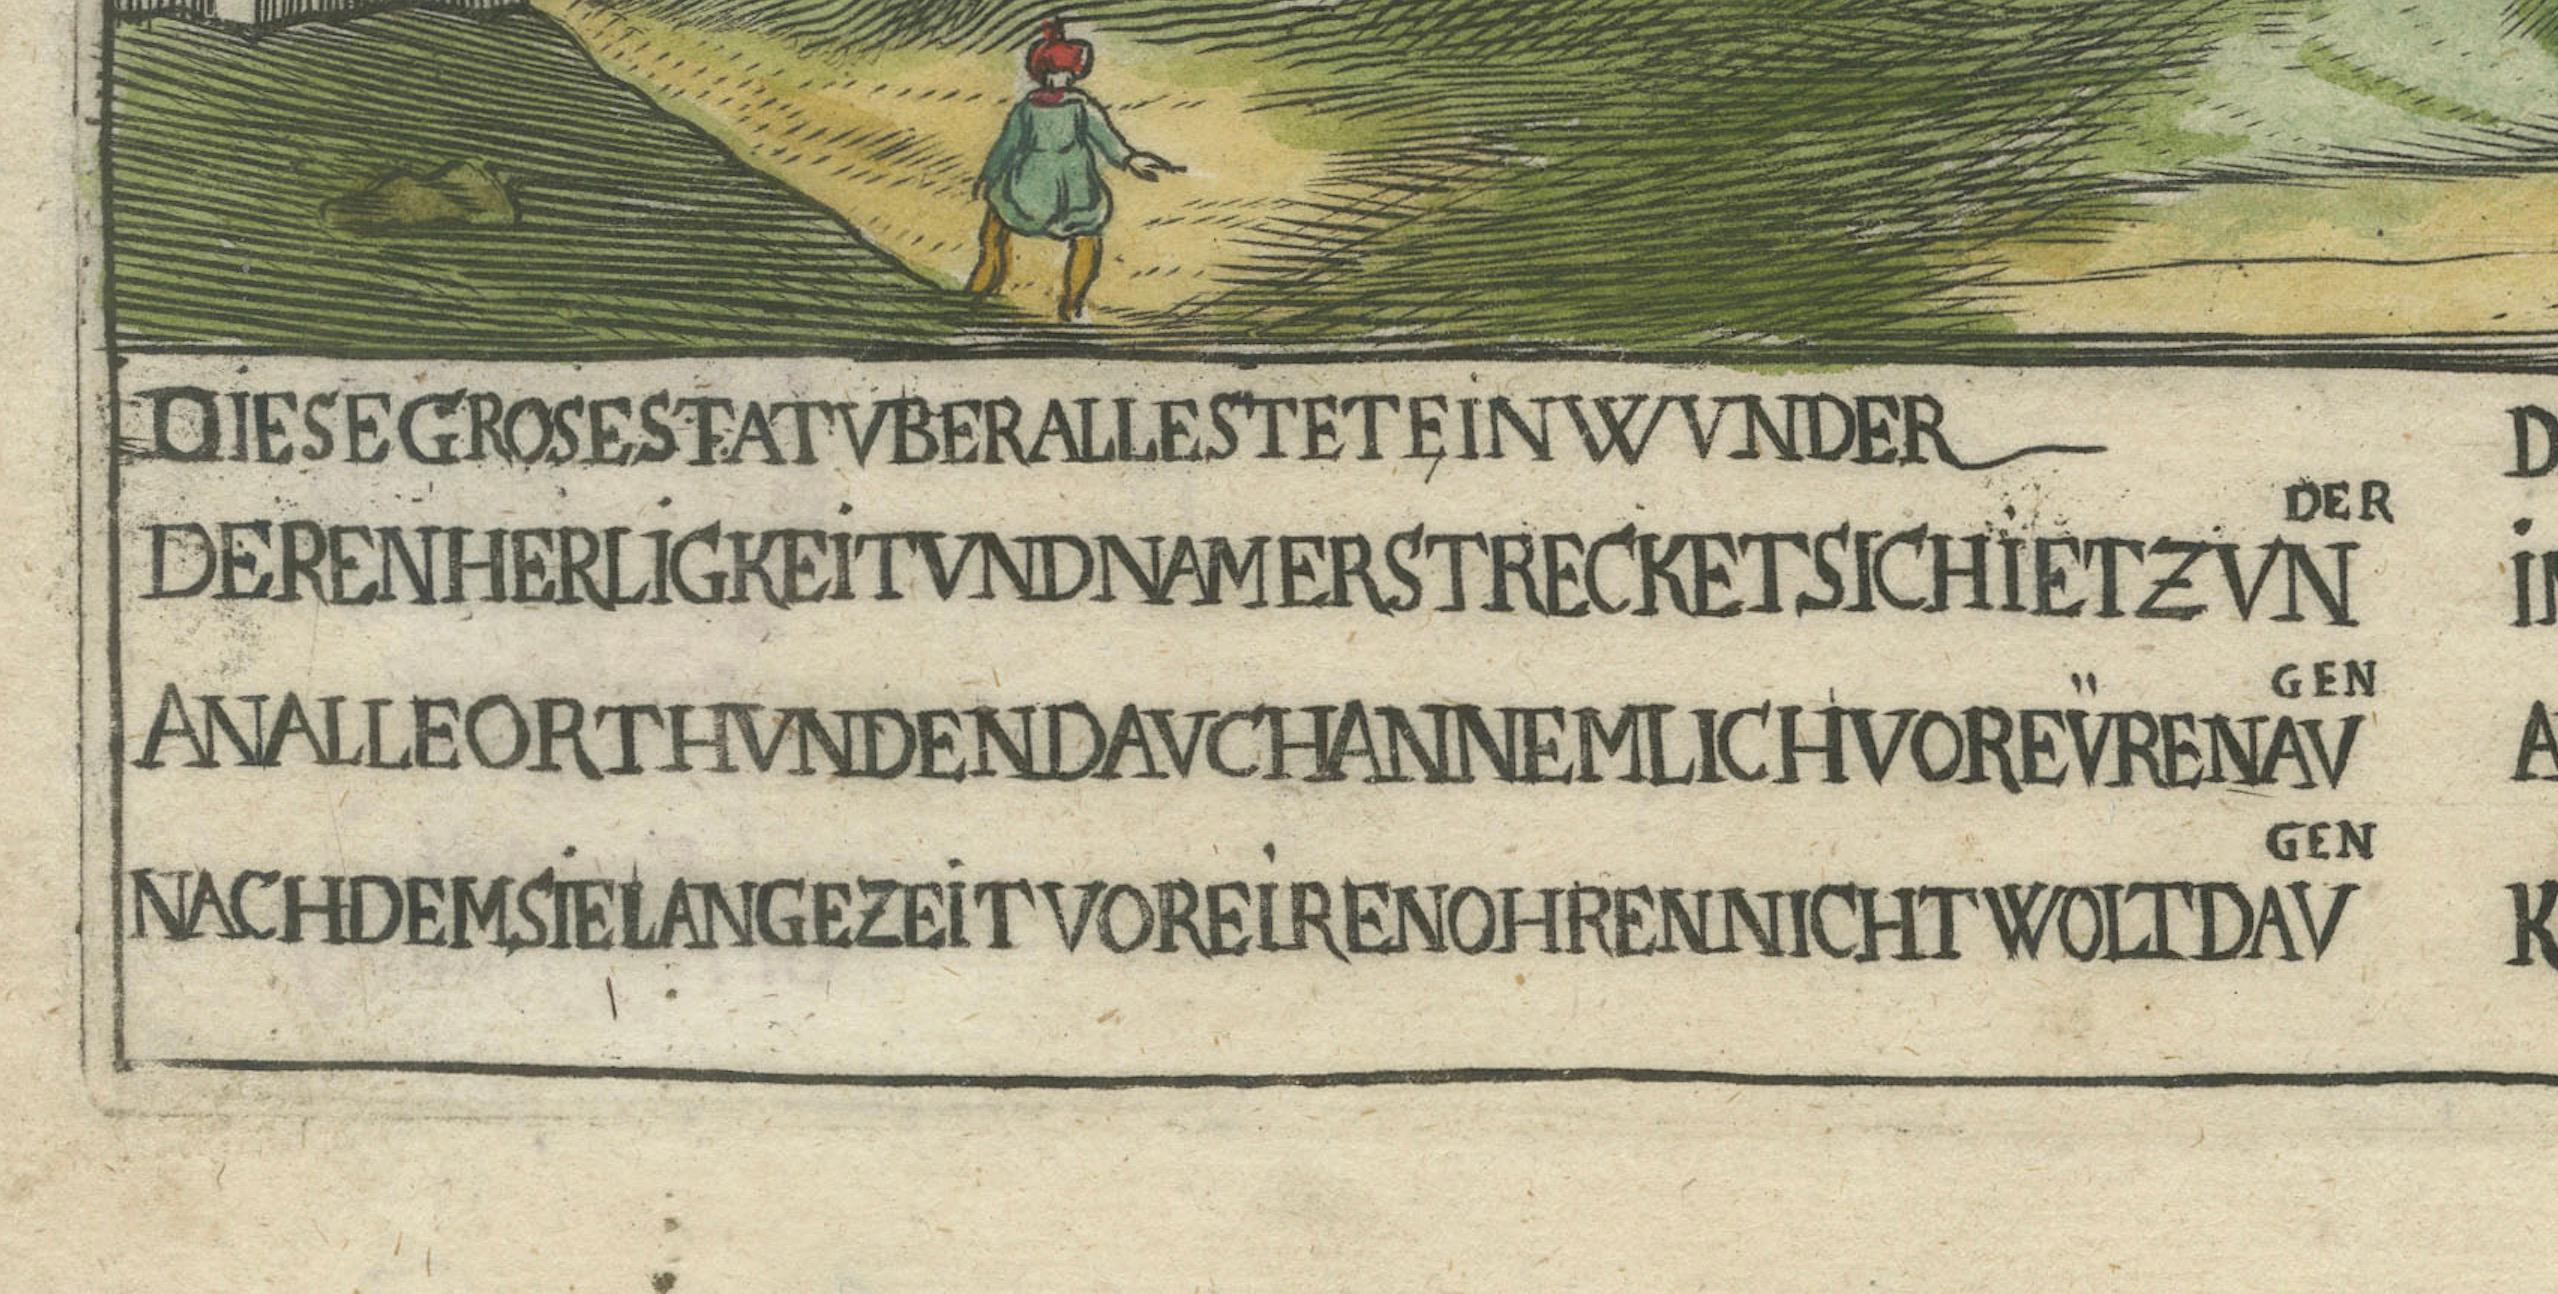 DIESE GROSE STAT VBER ALLE STETE EIN WVNDER
DEREN HERLİGKEİT VND NAM ERSTRECKET SICH İETZVNDER
AN ALLE ORTH VNDEND AVCH AN NEMLICH VOR EV̈REN AVGEN
NACHDEM SİE LANGE ZEİT VOR EİREN OHREN NICHT WOLT DAVGEN